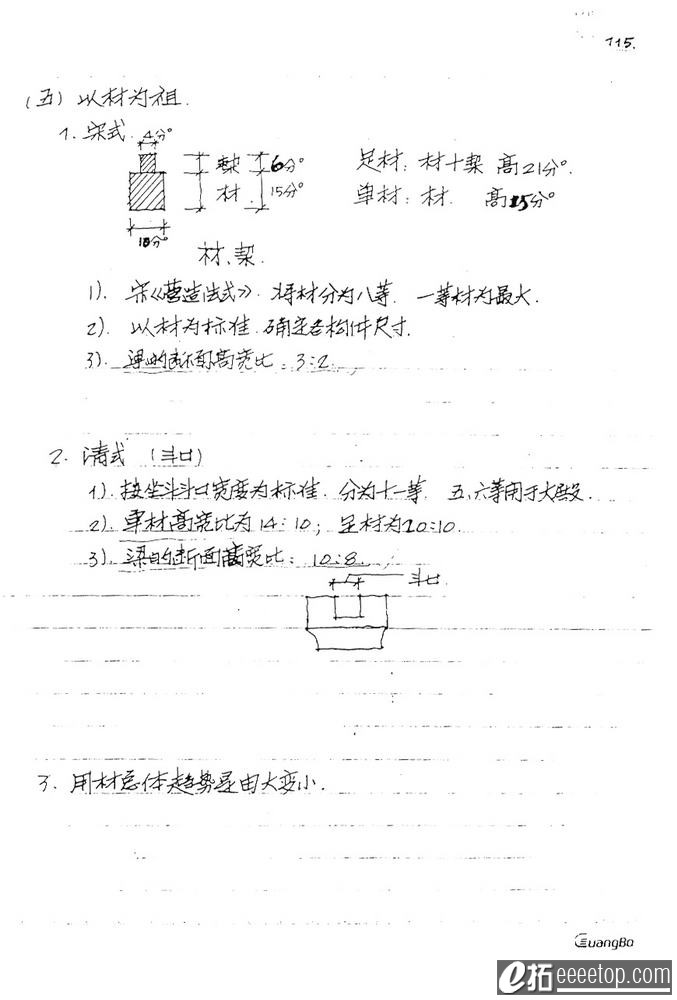 115.
(五) 以材为祖.
1. 宋式. 4分°
栔 6分° 足材: 材+栔 高21分°.
材 15分° 单材: 材. 高15分°
10分°
材、栔.
1). 宋《营造法式》. 将材分为八等. 一等材为最大.
2). 以材为标准. 确定各构件尺寸.
3). 梁的断面高宽比: 3:2.
2. 清式 (斗口)
1). 按坐斗斗口宽度为标准. 分为十一等. 五、六等用于大殿.
2). 单材高宽比为14:10; 足材为20:10.
3). 梁的断面高宽比: 10:8.
斗口.
3. 用材总体趋势是由大变小.
GuangBo
e拓 eeeetop.com